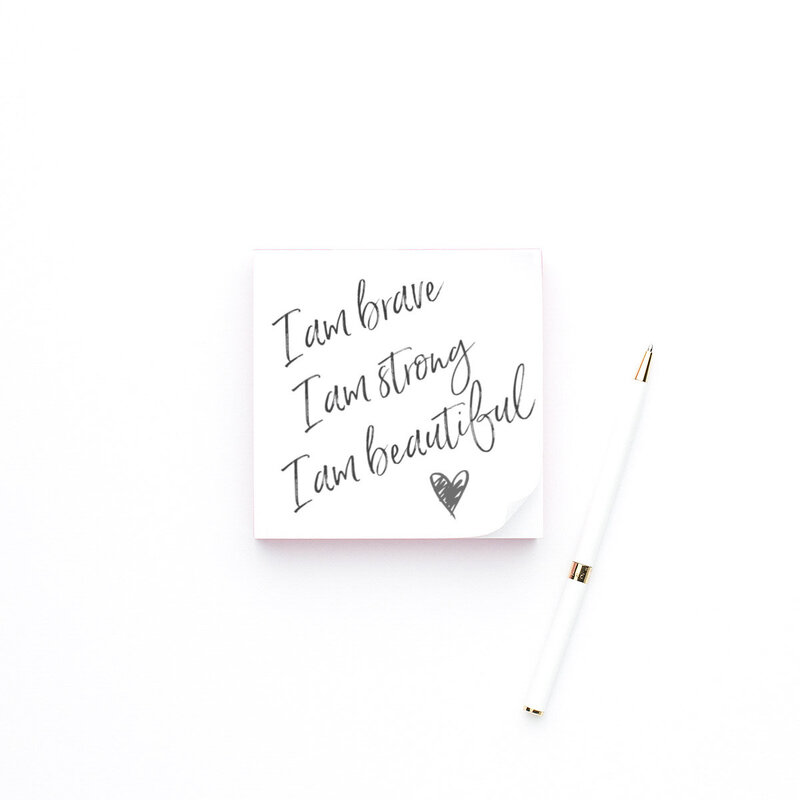 I am brave
I am strong
I am beautiful